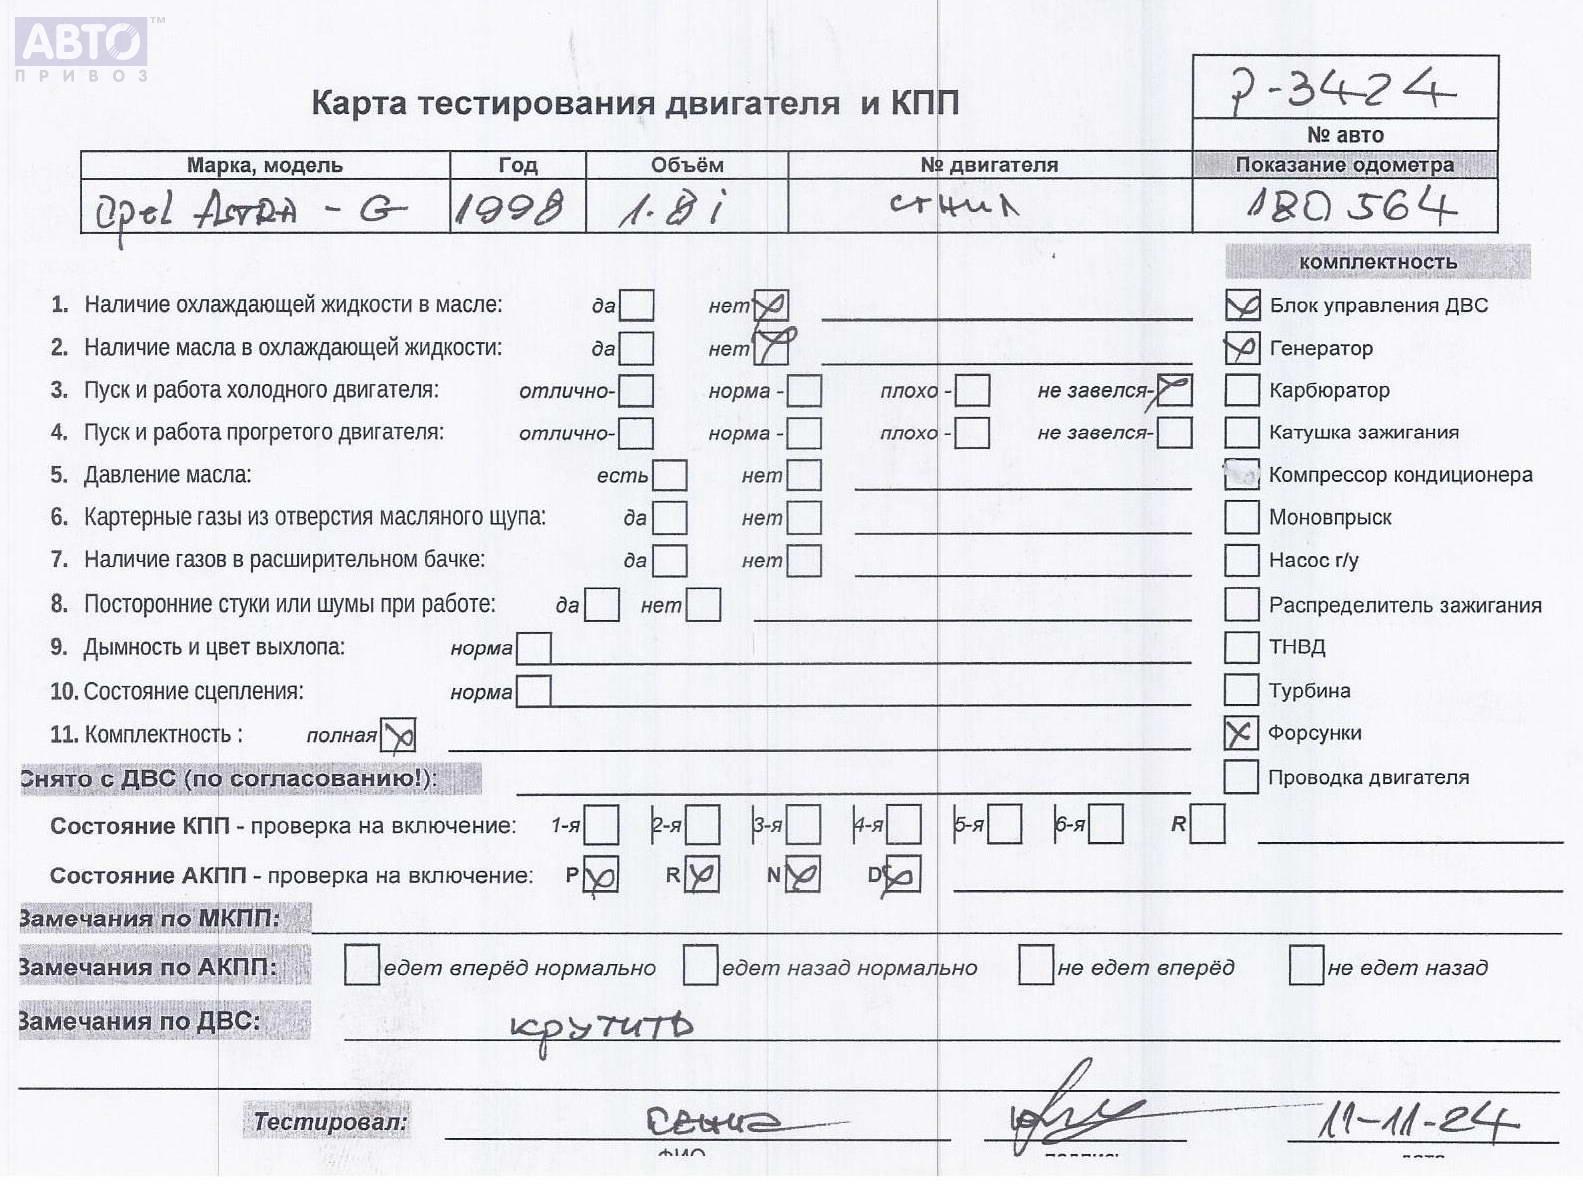 АВТО™
ПРИВОЗ
Р-3424
Карта тестирования двигателя и КПП
№ авто
Марка, модель Год Объём № двигателя Показание одометра
Opel ASTRA - G 1998 1.8i сгнил 180 564
комплектность
1. Наличие охлаждающей жидкости в масле: да нет Блок управления ДВС
2. Наличие масла в охлаждающей жидкости: да нет Генератор
3. Пуск и работа холодного двигателя: отлично- норма - плохо - не завелся- Карбюратор
4. Пуск и работа прогретого двигателя: отлично- норма - плохо - не завелся- Катушка зажигания
5. Давление масла: есть нет Компрессор кондиционера
6. Картерные газы из отверстия масляного щупа: да нет Моновпрыск
7. Наличие газов в расширительном бачке: да нет Насос г/у
8. Посторонние стуки или шумы при работе: да нет Распределитель зажигания
9. Дымность и цвет выхлопа: норма ТНВД
10. Состояние сцепления: норма Турбина
11. Комплектность : полная Форсунки
Снято с ДВС (по согласованию!): Проводка двигателя
Состояние КПП - проверка на включение: 1-я 2-я 3-я 4-я 5-я 6-я R
Состояние АКПП - проверка на включение: P R N D
Замечания по МКПП:
Замечания по АКПП: едет вперёд нормально едет назад нормально не едет вперёд не едет назад
Замечания по ДВС: крутить
Тестировал: 11-11-24
ФИО подпись дата